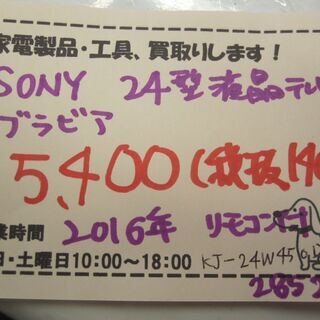 家電製品・工具、買取りします！
SONY 24型液晶テレ
ブラビア
5,400(税抜140
業時間 2016年 リモコン
日・土曜日10:00〜18:00 KJ-24W45
2852